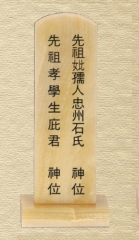 先祖妣孺人忠州石氏 神位
先祖孝學生庇君 神位